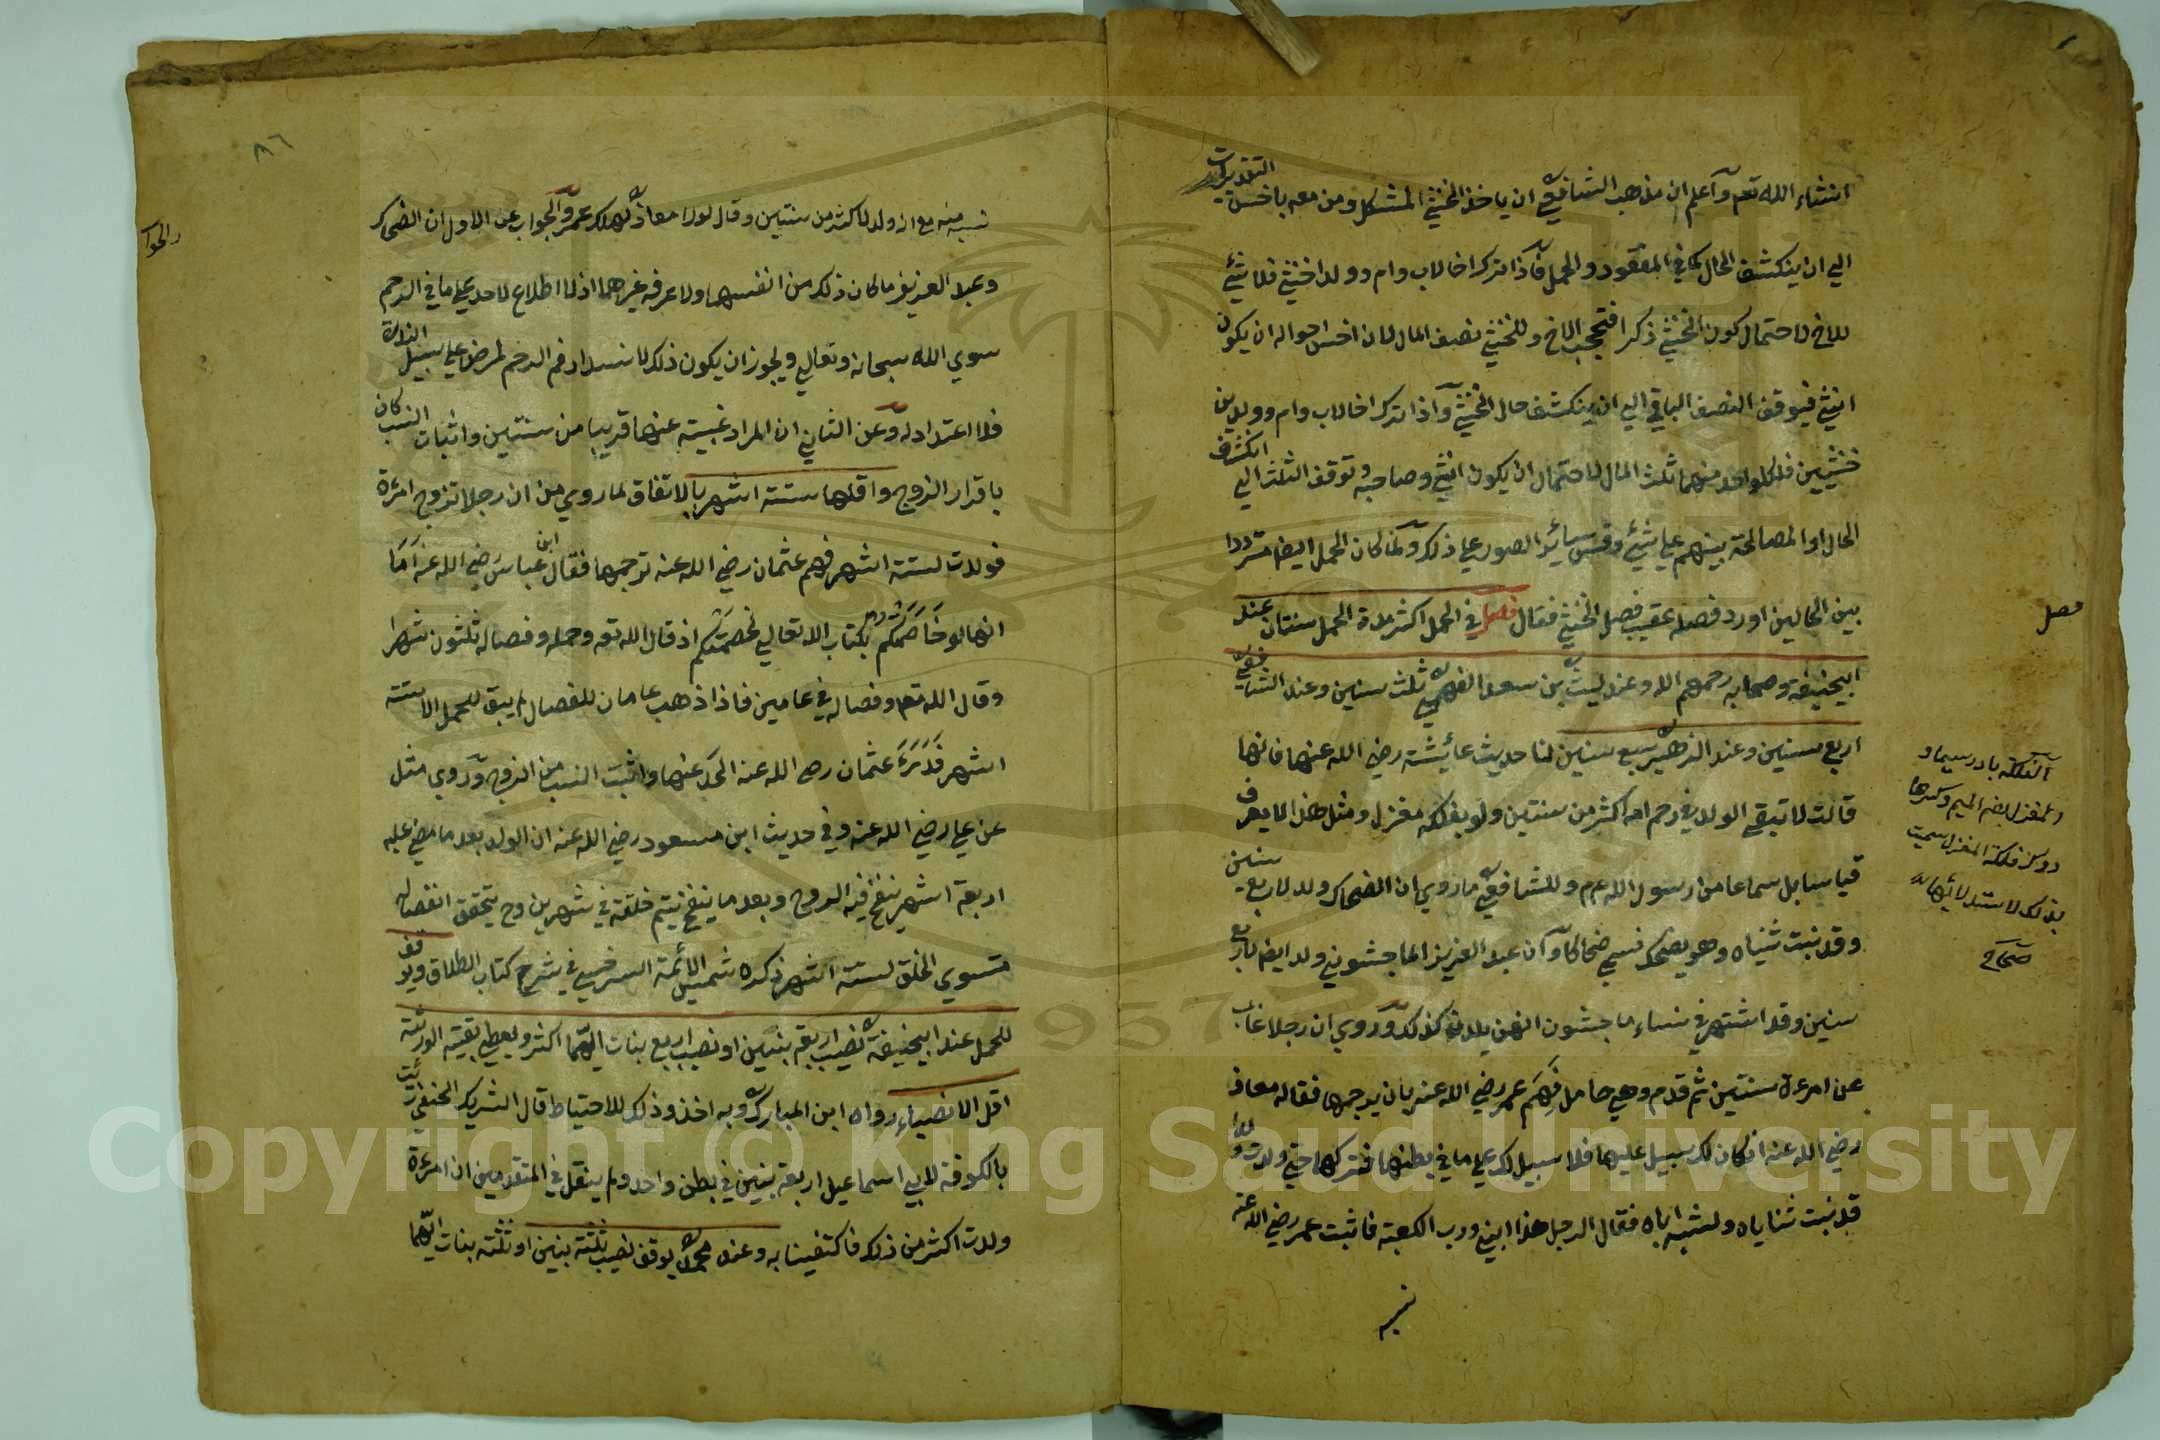 انشاء الله تعم واعلم ان مذهب الشافعي ان ياخذ الخنثي المشكل ومن معه باخس التقديرات
الي ان ينكشف الحال كما في المفقود والحمل فاذا ترك اخا لاب وام وولدا خنثي فلا شئ
للاخ لاحتمال كون الخنثي ذكرا فتحجب الاخ وللخنثي نصف المال لان اخس احواله ان يكون
انثي فيوقف النصف الباقي الي ان ينكشف حال الخنثي واذا ترك اخا لاب وام وولدين
خنثيين فلكل واحد منهما ثلث المال لاحتمال ان يكون انثي وصاحبه وتوقف الثلث الي انكشاف
الحال او المصالحة بينهم علي شئ وقس سائر الصور علي ذلك ولما كان الحمل ايضا مترددا
بين الحالين اورد فصله عقيب فصل الخنثي فقال فصل في الحمل اكثر مدة الحمل سنتان عند
ابيحنيفة وصحابه رحمهم الله وعند ليث بن سعد الفهمي ثلث سنين وعند الشافعي
اربع سنين وعند الزهري سبع سنين لنا حديث عائشة رضي الله عنها فانها
قالت لا تبقي الولد في رحم امه اكثر من سنتين ولو بفلكه مغزل ومثل هذا لا يعرف
قياسا بل سماعا من رسول الله عم وللشافعي ما روي ان الضحاك ولد لاربع سنين
وقد نبت ثنياه وهو يضحك فسمي ضحاكا وان عبد العزيز الماجشوني ولد ايضا باربع
سنين وقد اشتهر في نساء ماجشون انهن يلدن كذلك وروي ان رجلا غاب
عن امرءة سنتين ثم قدم وهي حامل فهم عمر رضي الله عنه بان يرجمها فقاله معاذ
رضي الله عنه ان كان لك سبيل عليها فلا سبيل لك علي ما في بطنها فتركها حتي ولدت ولدا
قد نبت ثناياه ولشبه اباه فقال الرجل هذا ابني ورب الكعبة فاثبت عمر رضي الله عنه
نسبه
فصل
الفلكة بادر سيماو
والمغزل بضم الميم وكسرها
دوس فلكة المغزل سميت
بذلك لاستدلائها
صحاح
٨٦
نسبه منه مع انه ولد لاكثر من سنتين وقال لولا معاذ لهلك عمر والجواب عن الاول ان الضحاك
وعبد العزيز ما كان ذلك من انفسهما ولا عرفه غيرهما اذ لا اطلاع لاحد علي ما في الرحم
سوي الله سبحانه وتعالي ويجوز ان يكون ذلك لانسداد فم الرحم لمرض علي سبيل الندرة
فلا اعتداد له وعن الثاني ان المراد غيبته عنها قريبا من سنتين واثبات النسب كان
باقرار الزوج واقلها ستة اشهر بالاتفاق لما روي من ان رجلا تزوج امرءة
فولدت لستة اشهر فهم عثمان رضي الله عنه ترجمها فقال ابن عباس رضي الله عنه اما
انها لو خاصمتكم بكتاب الله تعالي لخصمتكم اذ قال الله تعه وحمله وفصاله ثلثون شهرا
وقال الله تعم وفصاله في عامين فاذا ذهب عامان للفصال لم يبق للحمل الا ستة
اشهر فدرء عثمان رضي الله عنه الحد عنها واثبت النسب من الزوج وروي مثله
عن علي رضي الله عنه وفي حديث ابن مسعود رضي الله عنه ان الولد بعد ما مضي عليه
اربعة اشهر ينفخ فيه الروح وبعد ما ينفخ يتم خلقه في شهرين وح يتحقق انفصاله
مستوي الخلق لستة اشهر ذكره شمس الائمة السرخسي في شرح كتاب الطلاق ويوقف
للحمل عند ابيحنيفة نصيب اربعة بنين او نصيب اربع بنات ايهما اكثر ويعطي بقية الورثة
اقل الانصباء رواه ابن المبارك وبه اخذ وذلك للاحتياط قال الشريك الحنفي رئيت
بالكوفة لابي اسماعيل اربعة بنين في بطن واحد ولم ينقل في المتقدمين ان امرءة
ولدت اكثر من ذلك فاكتفينا به وعند محمد يوقف نصيب ثلثة بنين او ثلثة بنات ايهما